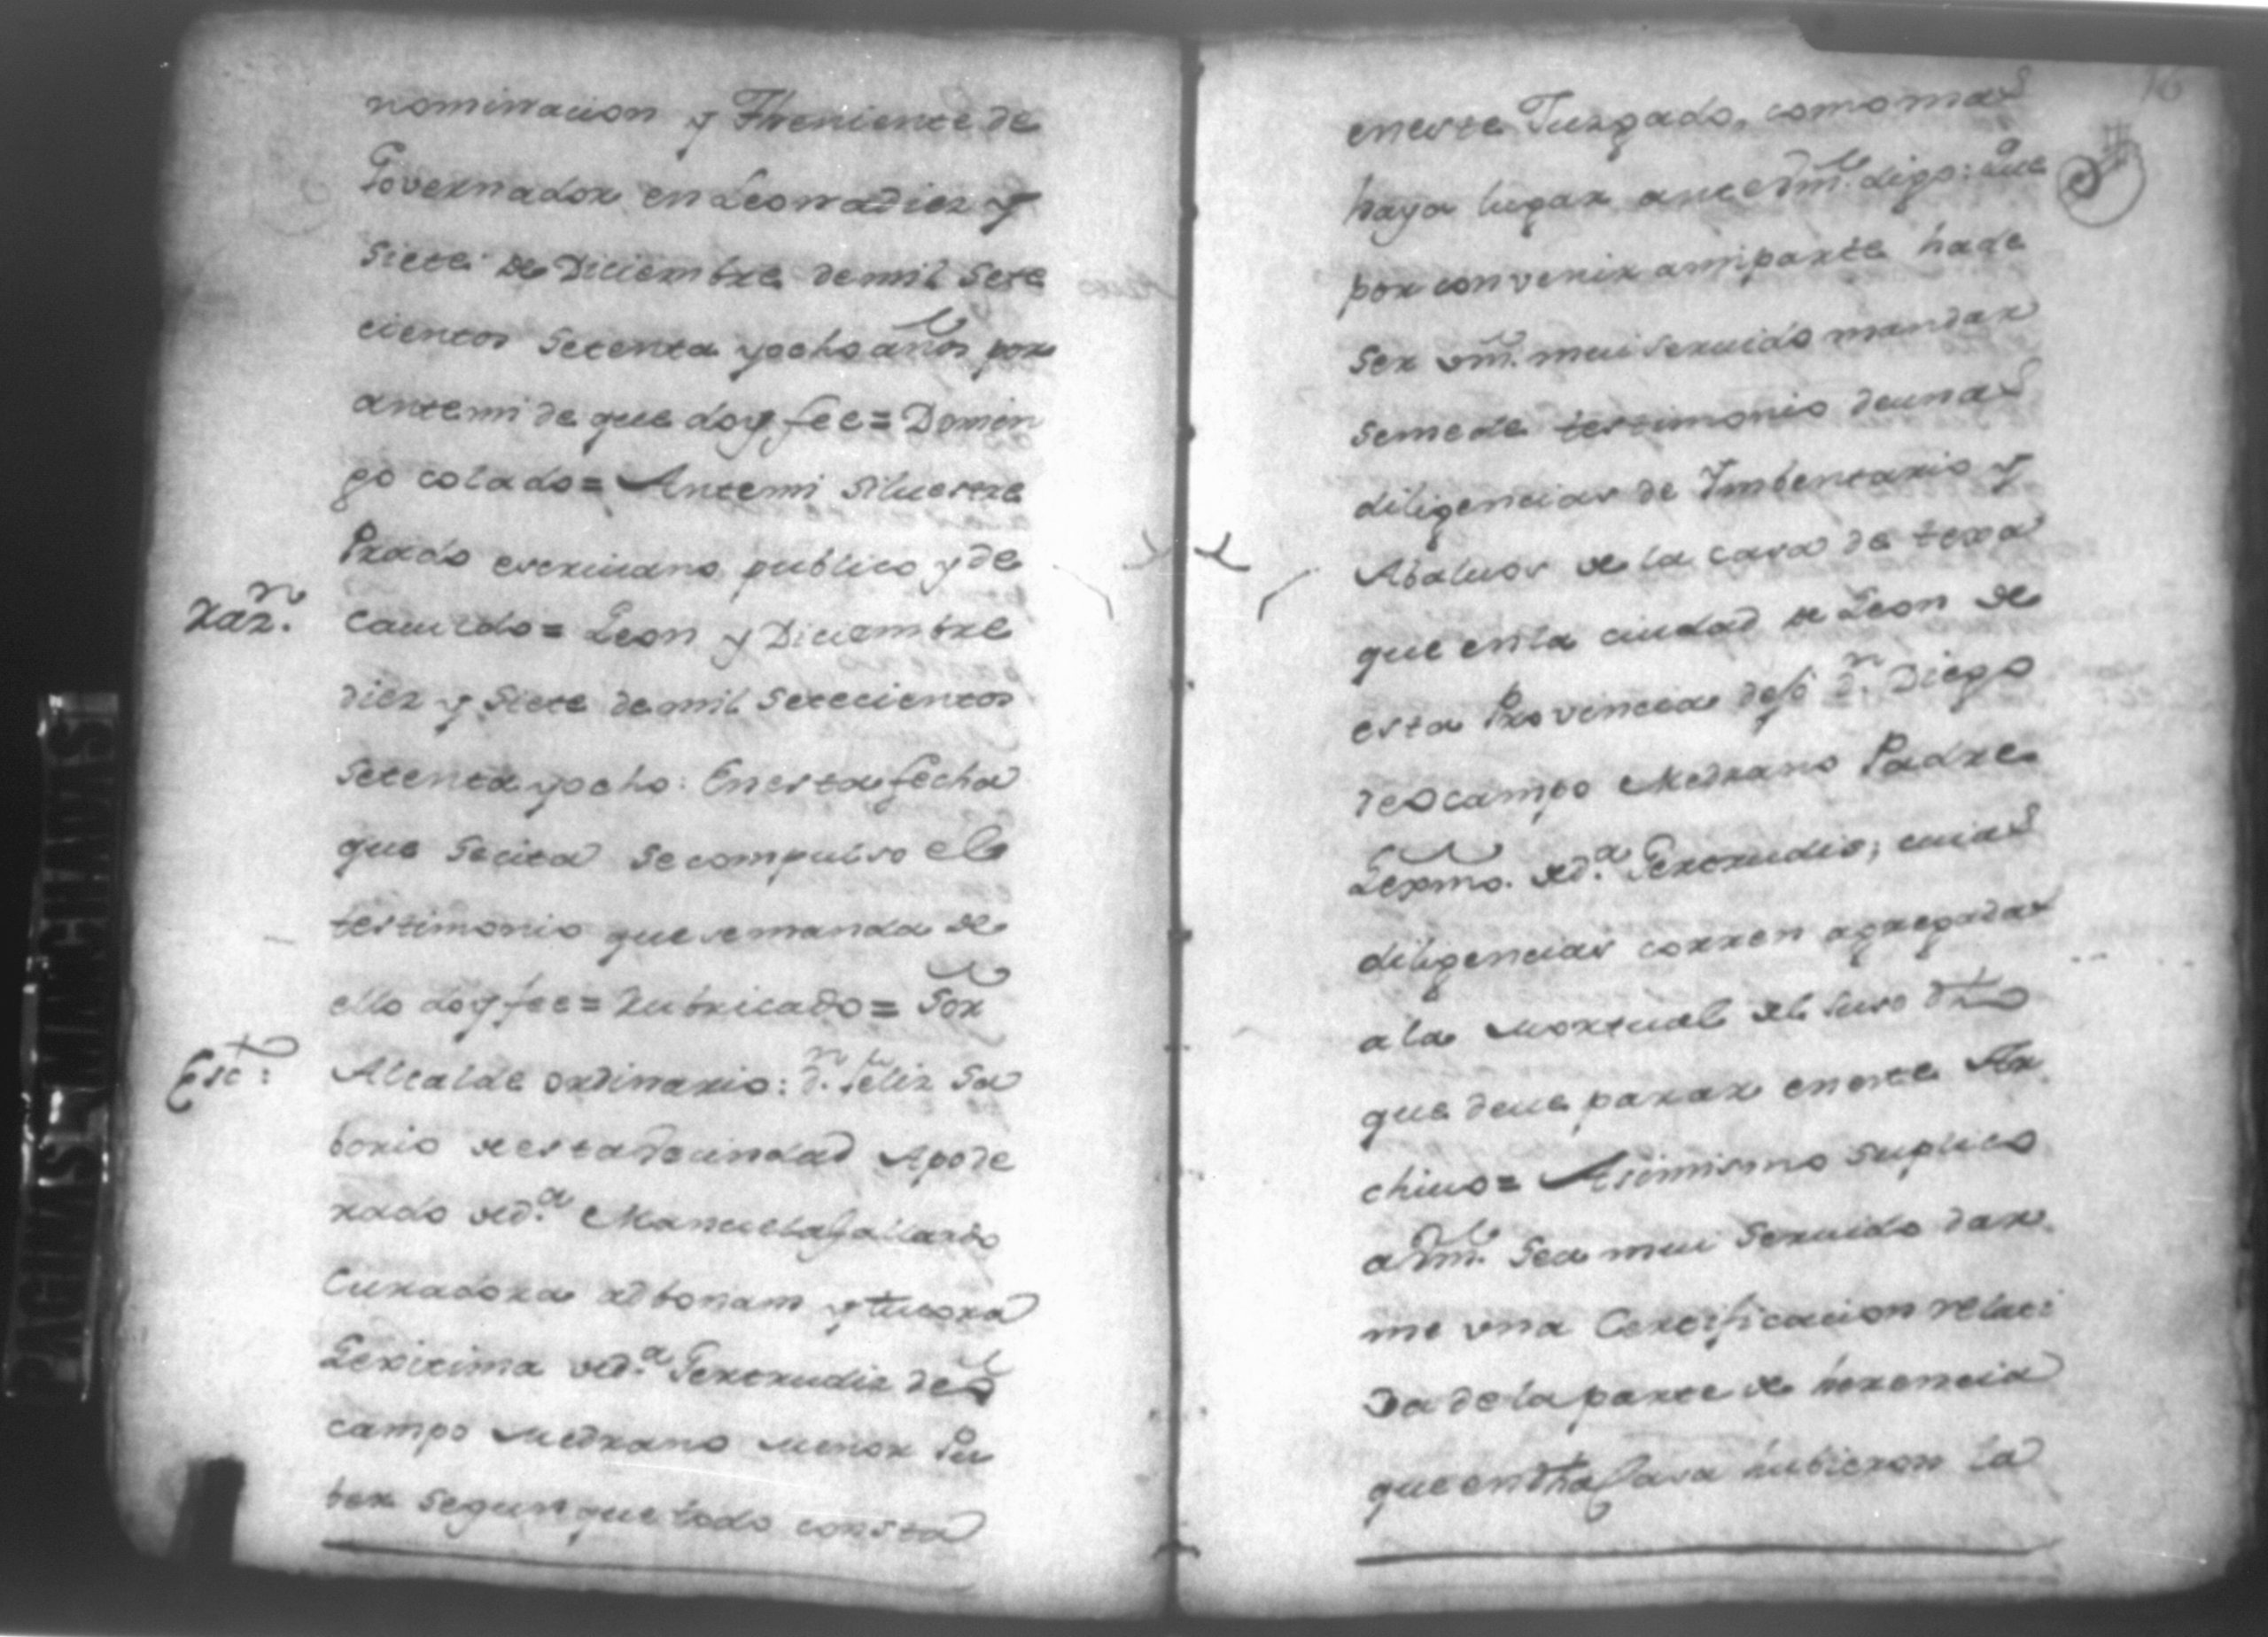 nominacion y Theniente de
Governador en Leon a diez y
siete de Diciembre de mil sete
cientos setenta y ocho años por
ante mi de que doy fee = Domin
go colado = Antemi Silvestre
Prado escriuano publico y de
Razn.
Cauildo = Leon y Diciembre
diez y siete de mil setecientos
setenta y ocho: En esta fecha
que se cita se compulso el
testimonio que se manda de
ello doy fee = Rubricado = Sor
Esct:
Alcalde ordinario: dn. Feliz Sa
borio de esta vecindad Apode
rado de da. Manuela Gallardo
Curadora ad bonam y tutora
Lexitima de da. Gertrudiz de O
campo Medrano menor Pu
ber segun que todo consta
16
en este Juzgado, como mas
haya lugar ante vm. digo: Que
por convenir a mi parte ha de
ser vm. mui seruido mandar
se me de testimonio de unas
diligencias de Imbentario y
Abaluos de la casa de texa
que en la ciudad de Leon de
esta Provincia dejó dn. Diego
de Ocampo Medrano Padre
Lexmo. de da. Gertrudis; cuias
diligencias corren agregadas
a la mortual del suso dho
que deue parar en este Ar
chiuo = Asimismo suplico
a vm. sea mui seruido dar
me vna Certificacion relaci
Da de la parte de herencia
que en dha Casa hubieron la
PAGINAS MANCHADAS